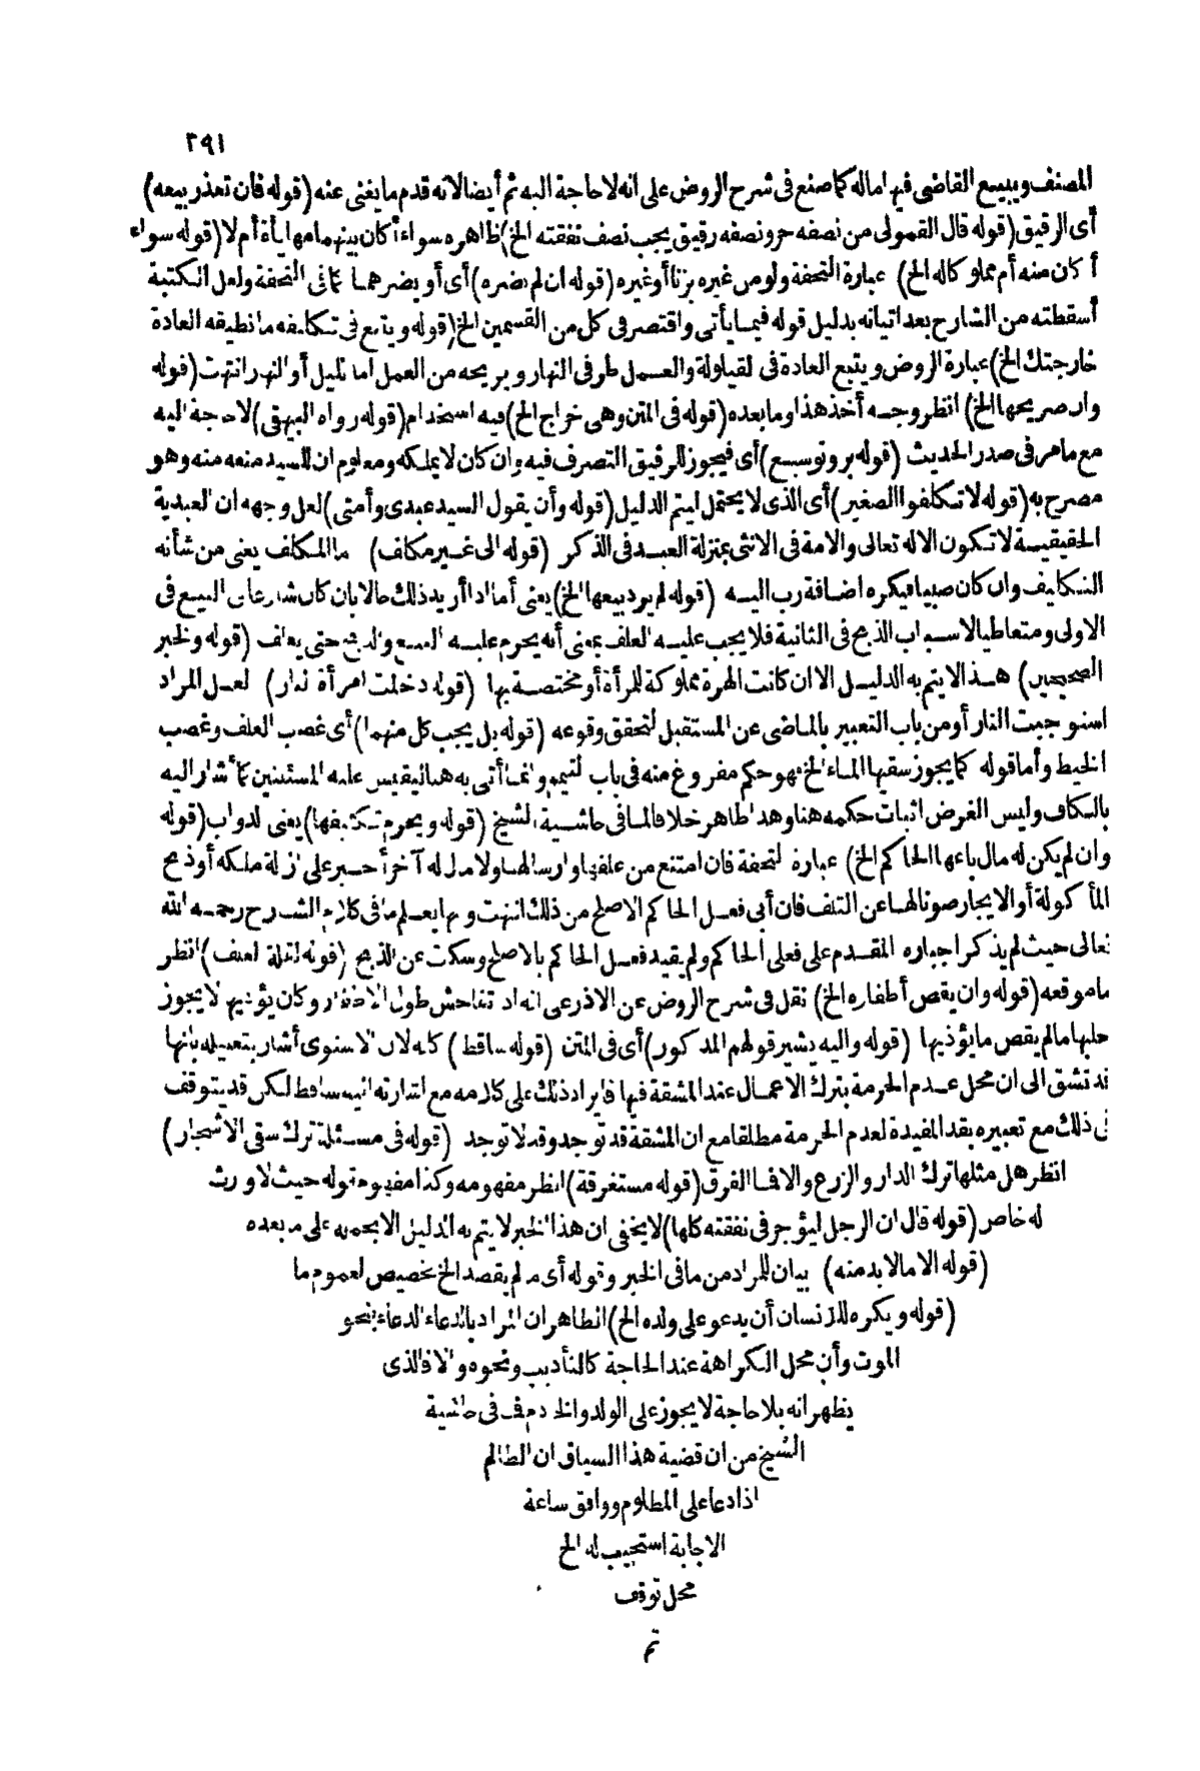 ٢٩١
المصنف ويبيع القاضى فيها ماله كما صنع فى شرح الروض على انه لا حاجة اليه ثم أيضا لانه قدم ما يغنى عنه (قوله فان تعذر بيعه)
أى الرقيق (قوله قال القمولى من نصفه حر ونصفه رقيق يجب نصف نفقته الخ) ظاهره سواء أكان بينهما مهايأة أم لا (قوله سواء
أكان منه أم مملوكا له الخ) عبارة التحفة ولو من غيره بزنا أو غيره (قوله ان لم يضره) أى أو يضرهما كما فى التحفة ولعل الكتبة
أسقطته من الشارح بعد اتيانه بدليل قوله فيما يأتى واقتصر فى كل من القسمين الخ (قوله ويتبع فى تكليفه ما تطيقه العادة
خارجتك الخ) عبارة الروض ويتبع العادة فى القيلولة والعمل طرفى النهار ويريحه من العمل اما بالليل أو النهار انتهت (قوله
وان صريحها الخ) انظر وجه أخذ هذا وما بعده (قوله فى المتن وهى خراج الخ) فيه استخدام (قوله رواه البيهقى) لا حاجة اليه
مع ما مر فى صدر الحديث (قوله بر وتوسيع) أى فيجوز للرقيق التصرف فيه وان كان لا يملكه ومعلوم ان للسيد منعه منه وهو
مصرح به (قوله لا تكلفوا الصغير) أى الذى لا يحتمل ليتم الدليل (قوله وأن يقول السيد عبدى وأمتى) لعل وجهه ان العبدية
الحقيقية لا تكون الا له تعالى والامة فى الانثى بمنزلة العبد فى الذكر (قوله الى غير مكلف) مالمكلف يعنى من شأنه
التكليف وان كان صبيا فيكره اضافة رب اليه (قوله لم يرد بيعها الخ) يعنى أما اذا أريد ذلك حالا بان كان شارعا فى البيع فى
الاولى ومتعاطيا لاسباب الذبح فى الثانية فلا يجب عليه العلف بمعنى أنه يحرم عليه البيع والذبح حتى يعلف (قوله ولخبر
الصحيحين) هذا لا يتم به الدليل الا ان كانت الهرة مملوكة للمرأة أو مختصة بها (قوله دخلت امرأة النار) لعل المراد
استوجبت النار أو من باب التعبير بالماضى عن المستقبل لتحقق وقوعه (قوله بل يجب كل منهما) أى غصب العلف وغصب
الخيط وأما قوله كما يجوز سقيها الماء الخ فهو حكم مفروغ منه فى باب التيمم وانما أتى به هنا ليقيس عليه المسئلتين كما أشار اليه
بالكاف وليس الغرض اثبات حكمه هنا وهذا ظاهر خلافا لما فى حاشية الشيخ (قوله ويحرم تكليفها) يعنى الدواب (قوله
وان لم يكن له مال باعها الحاكم الخ) عبارة التحفة فان امتنع من علفها وارسالها ولا مال له آخر أجبر على ازالة ملكه أو ذبح
المأكولة أو الايجار صونا لها عن التلف فان أبى فعل الحاكم الاصلح من ذلك انتهت وبها يعلم ما فى كلام الشارح رحمه الله
تعالى حيث لم يذكر اجباره المقدم على فعلى الحاكم ولم يقيد فعل الحاكم بالاصلح وسكت عن الذبح (قوله لقلة العلف) انظر
ما موقعه (قوله وان يقص أظفاره الخ) نقل فى شرح الروض عن الاذرعى انه اذا تفاحش طول الاظفار وكان يؤذيها لا يجوز
حلبها ما لم يقص ما يؤذيها (قوله واليه يشير قولهم المذكور) أى فى المتن (قوله ساقط) كأنه لان الاسنوى أشار بتعبيره بانها
قد تشق الى ان محل عدم الحرمة بترك الاعمال عند المشقة فيها فايراد ذلك على كلامه مع اشارته اليه ساقط لكن قد يتوقف
فى ذلك مع تعبيره بقد المفيدة لعدم الحرمة مطلقا مع ان المشقة قد توجد وقد لا توجد (قوله فى مسئلة ترك سقى الاشجار)
انظر هل مثلها ترك الدار والزرع والا فما الفرق (قوله مستغرقة) انظر مفهومه وكذا مفهوم قوله حيث لا وارث
له خاص (قوله قال ان الرجل ليؤجر فى نفقته كلها) لا يخفى ان هذا الخبر لا يتم به الدليل الا بحمله على ما بعده
(قوله الا ما لا بد منه) بيان للمراد من ما فى الخبر وقوله أى ما لم يقصد الخ تخصيص لعموم ما
(قوله ويكره للانسان أن يدعو على ولده الخ) الظاهر ان المراد بالدعاء الدعاء بنحو
الموت وأن محل الكراهة عند الحاجة كالتأديب ونحوه والا فالذى
يظهر انه بلا حاجة لا يجوز على الولد والخادم فما فى حاشية
الشيخ من ان قضية هذا السياق ان الظالم
اذا دعا على المظلوم ووافق ساعة
الاجابة استجيب له الخ
محل توقف
تم